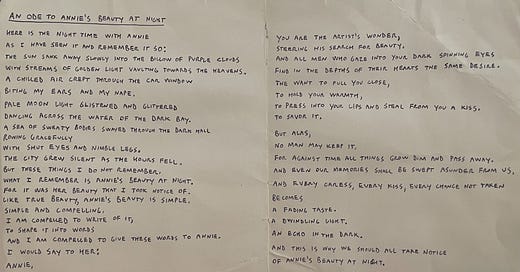 AN ODE TO ANNIE'S BEAUTY AT NIGHT
HERE IS THE NIGHT TIME WITH ANNIE
AS I HAVE SEEN IT AND REMEMBER IT SO:
THE SUN SANK AWAY SLOWLY INTO THE BILLOW OF PURPLE CLOUDS
WITH STREAMS OF GOLDEN LIGHT VAULTING TOWARDS THE HEAVENS.
A CHILLED AIR CREPT THROUGH THE CAR WINDOW
BITING MY EARS AND MY NAPE.
PALE MOON LIGHT GLISTENED AND GLITTERED
DANCING ACROSS THE WATER OF THE DARK BAY.
A SEA OF SWEATY BODIES SWAYED THROUGH THE DARK HALL
ROWING GRACEFULLY
WITH SHUT EYES AND NIMBLE LEGS.
THE CITY GREW SILENT AS THE HOURS FELL.
BUT THESE THINGS I DO NOT REMEMBER.
WHAT I REMEMBER IS ANNIE'S BEAUTY AT NIGHT,
FOR IT WAS HER BEAUTY THAT I TOOK NOTICE OF.
LIKE TRUE BEAUTY, ANNIE'S BEAUTY IS SIMPLE.
SIMPLE AND COMPELLING.
I AM COMPELLED TO WRITE OF IT,
TO SHAPE IT INTO WORDS
AND I AM COMPELLED TO GIVE THESE WORDS TO ANNIE.
I WOULD SAY TO HER:
ANNIE,
YOU ARE THE ARTIST'S WONDER,
STEERING HIS SEARCH FOR BEAUTY.
AND ALL MEN WHO GAZE INTO YOUR DARK SPINNING EYES
FIND IN THE DEPTHS OF THEIR HEARTS THE SAME DESIRE.
THE WANT TO PULL YOU CLOSE,
TO HOLD YOUR WARMTH,
TO PRESS INTO YOUR LIPS AND STEAL FROM YOU A KISS.
TO SAVOR IT.
BUT ALAS,
NO MAN MAY KEEP IT.
FOR AGAINST TIME ALL THINGS GROW DIM AND PASS AWAY.
AND EVEN OUR MEMORIES SHALL BE SWEPT ASUNDER FROM US,
AND EVERY CARESS, EVERY KISS, EVERY CHANCE NOT TAKEN
BECOMES
A FADING TASTE.
A DWINDLING LIGHT.
AN ECHO IN THE DARK.
AND THIS IS WHY WE SHOULD ALL TAKE NOTICE
OF ANNIE'S BEAUTY AT NIGHT.